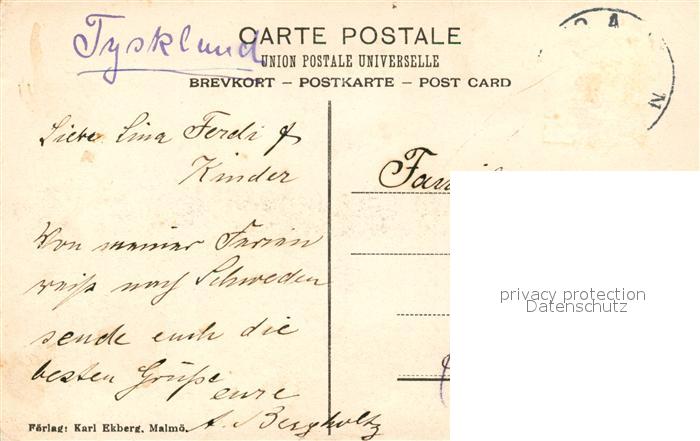 Tyskland
CARTE POSTALE
UNION POSTALE UNIVERSELLE
BREVKORT – POSTKARTE – POST CARD
Liebe Lina Ferdi &
Kinder
Von meiner Ferien
reiß nach Schweden
sende euch die
besten Grüße
eure
A. Bergholtz
Förlag: Karl Ekberg, Malmö.
privacy protection
Datenschutz